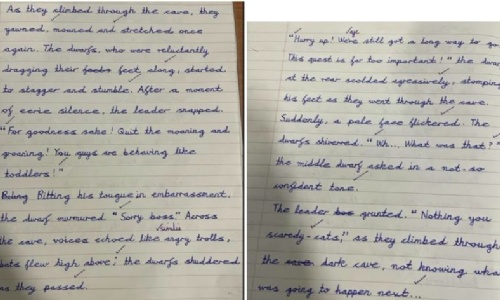 As they climbed through the cave, they
yawned, moaned and stretched once
again. The dwarfs, who were reluctantly
dragging their feet along, started
to stagger and stumble. After a moment
of eerie silence, the leader snapped.
"For goodness sake! Quit the moaning and
groaning! You guys are behaving like
toddlers!"
Bitting his tongue in embarrassment,
the dwarf murmured "Sorry boss." Across
the cave, voices echoed like angry trolls,
bats flew high above; the dwarfs shuddered
as they passed.
"Hurry up! We're still got a long way to go
This quest is far too important!" the dwar
at the rear scolded agressively, stomping
his feet as they went through the cave.
Suddenly, a pale face flickered. The
dwarfs shivered. "Wh... What was that?"
the middle dwarf asked in a not-so
confident tone.
The leader grunted. "Nothing you
scaredy-cats," as they climbed through
the dark cave, not knowing what
was going to happen next...